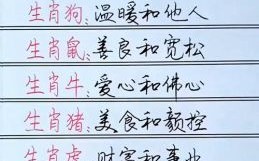 生肖狗:温暖和他人
生肖鼠:善良和宽松
生肖牛:爱心和佛心
生肖猪:美食和颜控
生肖虎:财富和事业